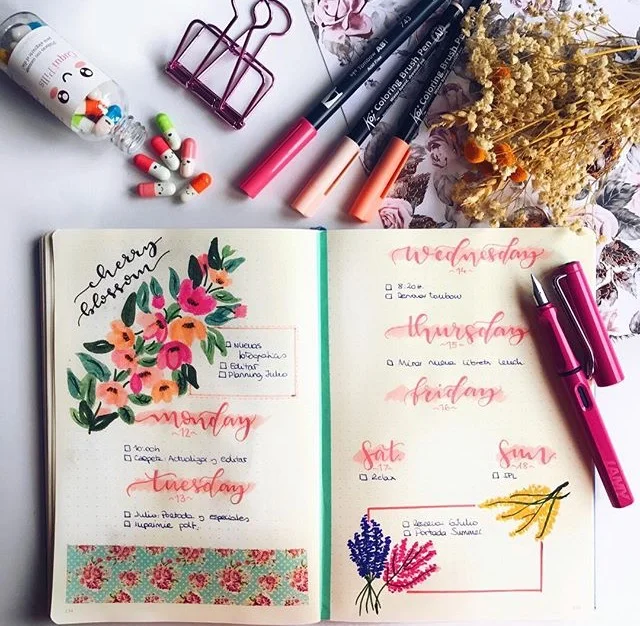 743
ABT
Koi Coloring Brush Pen
Koi Coloring Brush Pen
cherry
blossom
Nuevas
fotografías
Editar
Planning Julio
monday
~12~
10:00h
Carpeta: Actualizar y editar
tuesday
~13~
Julio: Portada y especiales
Imprimir pdf.
wednesday
~14~
8:20h
thursday
~15~
Mirar nueva libreta Leuch
friday
~16~
Sat
~17~
Relax
Sun
~18~
Portada Summer
LAMY